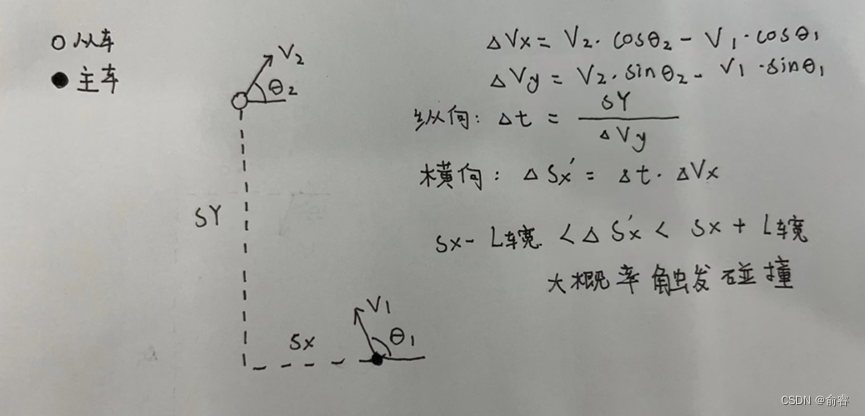 从车
主车
V₂
θ₂
SY
SX
V₁
θ₁
△Vx = V₂·cosθ₂ - V₁·cosθ₁
△Vy = V₂·sinθ₂ - V₁·sinθ₁
纵向: △t = SY / △Vy
横向: △Sx' = △t·△Vx
Sx - L车宽 < △Sx' < Sx + L车宽
大概率触发碰撞
CSDN @俞睿